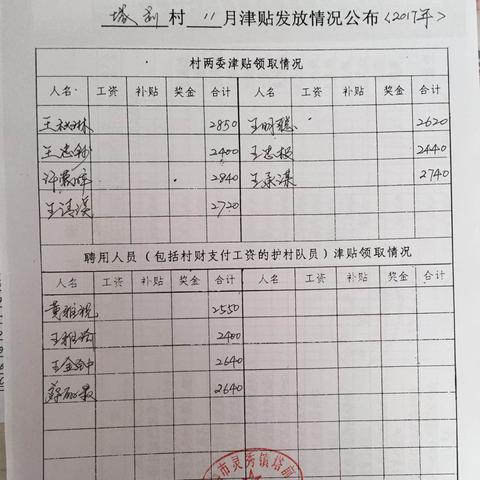 塔前村 11月津贴发放情况公布<2017年>
村两委津贴领取情况
人名 工资 补贴 奖金 合计 人名 工资 补贴 奖金 合计
王 2850 王明聪 2620
王忠 2400 王忠根 2440
许 2840 王 2740
王清 2720
聘用人员(包括村财支付工资的护村队员)津贴领取情况
人名 工资 补贴 奖金 合计 人名 工资 补贴 奖金 合计
黄雅 2550
王 2400
王金 2640
2640
市灵秀镇塔前